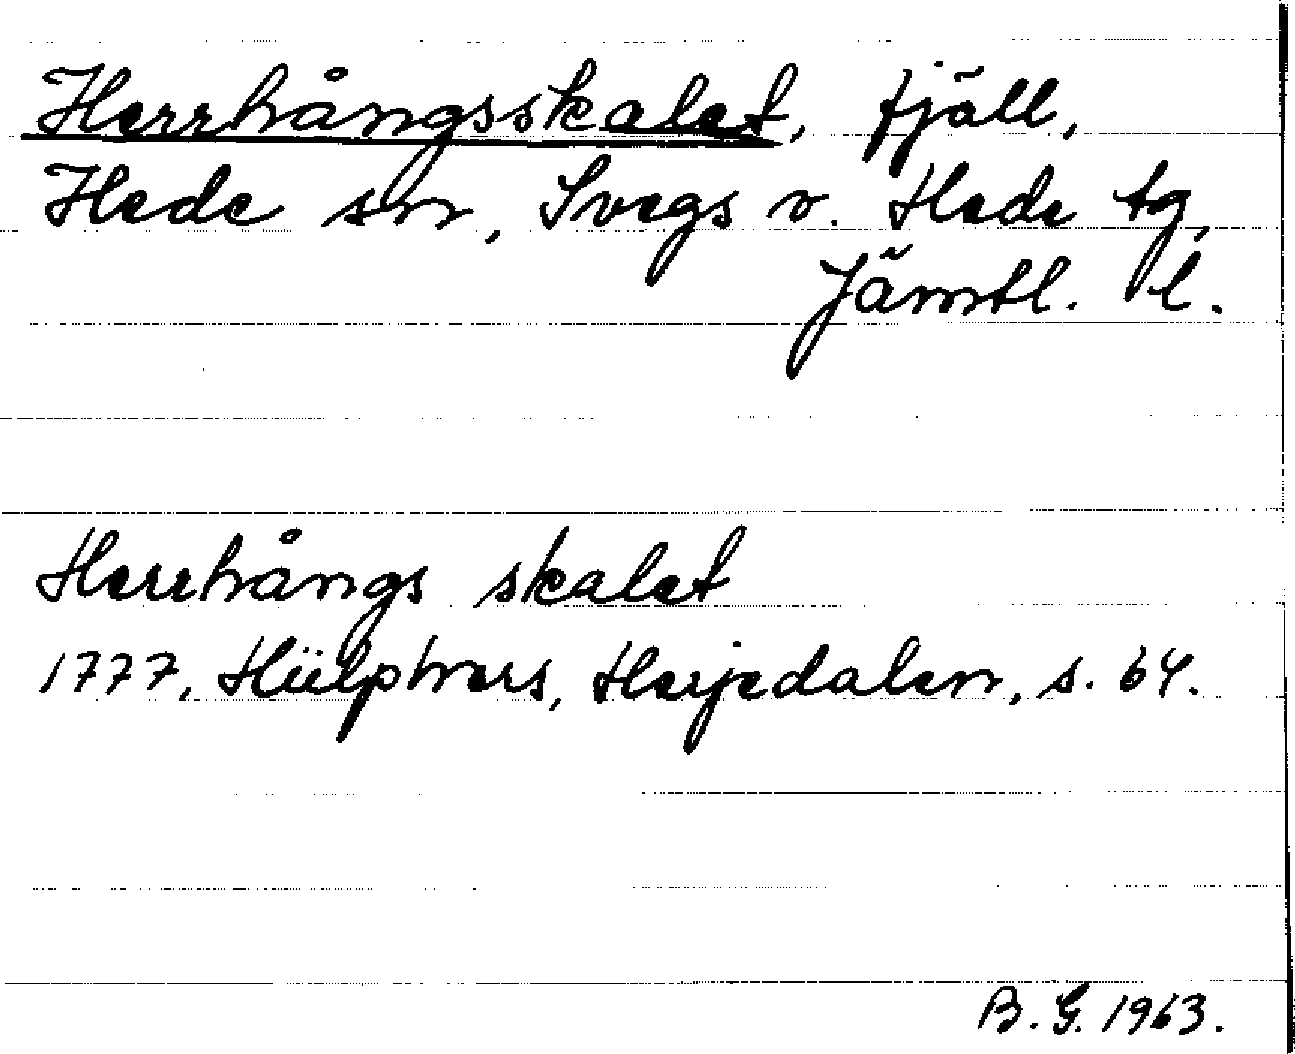 Herrhångsskalet, fjäll,
Hede sn, Svegs o. Hede tg,
Jämtl. l.
Herrhångs skalet
1777, Hülphers, Herjedalen, s. 64.
B. G. 1963.